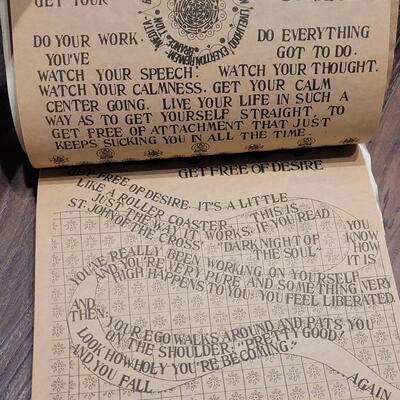 GET YOUR
DO YOUR WORK. DO EVERYTHING
YOU'VE GOT TO DO.
WATCH YOUR SPEECH. WATCH YOUR THOUGHT.
WATCH YOUR CALMNESS. GET YOUR CALM
CENTER GOING. LIVE YOUR LIFE IN SUCH A
WAY AS TO GET YOURSELF STRAIGHT TO
GET FREE OF ATTACHMENT THAT JUST
KEEPS SUCKING YOU IN ALL THE TIME.
GET FREE OF DESIRE
GET FREE OF DESIRE. IT'S A LITTLE
LIKE A ROLLER COASTER. THIS IS
JUST THE WAY IT WORKS. IF YOU READ
ST. JOHN OF THE CROSS' "DARK NIGHT OF
THE SOUL" YOU
KNOW
HOW
IT IS
YOU'VE REALLY BEEN WORKING ON YOURSELF
AND YOU'RE VERY PURE AND SOMETHING VERY
HIGH HAPPENS TO YOU: YOU FEEL LIBERATED.
AND
THEN:
YOUR EGO WALKS AROUND AND PATS YOU
ON THE SHOULDER. "PRETTY GOOD!
LOOK HOW HOLY YOU'RE BECOMING."
AND YOU FALL AGAIN